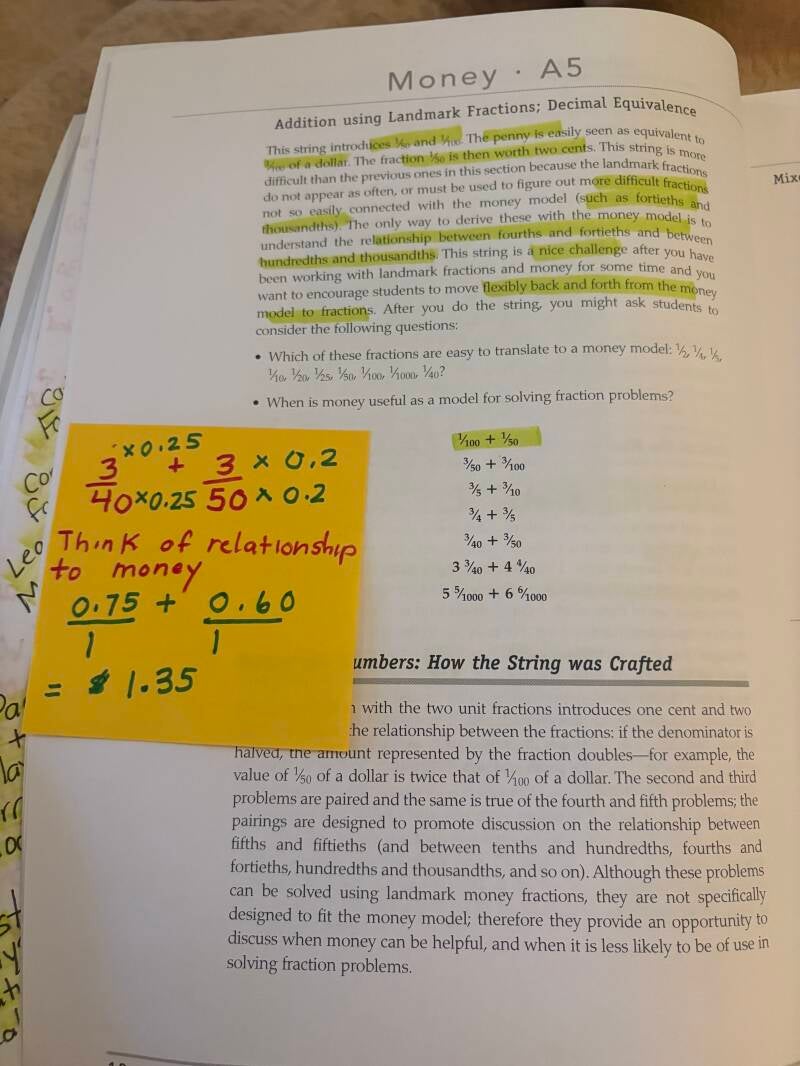 Money · A5
Addition using Landmark Fractions; Decimal Equivalence
This string introduces 1/50 and 1/100. The penny is easily seen as equivalent to
1/100 of a dollar. The fraction 1/50 is then worth two cents. This string is more
difficult than the previous ones in this section because the landmark fractions
do not appear as often, or must be used to figure out more difficult fractions
not so easily connected with the money model (such as fortieths and
thousandths). The only way to derive these with the money model is to
understand the relationship between fourths and fortieths and between
hundredths and thousandths. This string is a nice challenge after you have
been working with landmark fractions and money for some time and you
want to encourage students to move flexibly back and forth from the money
model to fractions. After you do the string, you might ask students to
consider the following questions:
• Which of these fractions are easy to translate to a money model: 1/2, 1/4, 1/5,
1/10, 1/20, 1/25, 1/50, 1/100, 1/1000, 1/40?
• When is money useful as a model for solving fraction problems?
1/100 + 1/50
3/50 + 3/100
3/5 + 3/10
3/4 + 3/5
3/40 + 3/50
3 3/40 + 4 4/40
5 5/1000 + 6 6/1000
3 × 0.25 + 3 × 0.2
40 × 0.25 50 × 0.2
Think of relationship
to money
0.75 + 0.60
1 1
= $ 1.35
umbers: How the String was Crafted
with the two unit fractions introduces one cent and two
the relationship between the fractions: if the denominator is
halved, the amount represented by the fraction doubles—for example, the
value of 1/50 of a dollar is twice that of 1/100 of a dollar. The second and third
problems are paired and the same is true of the fourth and fifth problems; the
pairings are designed to promote discussion on the relationship between
fifths and fiftieths (and between tenths and hundredths, fourths and
fortieths, hundredths and thousandths, and so on). Although these problems
can be solved using landmark money fractions, they are not specifically
designed to fit the money model; therefore they provide an opportunity to
discuss when money can be helpful, and when it is less likely to be of use in
solving fraction problems.
Mixe
Co
Fo
Co
Leo